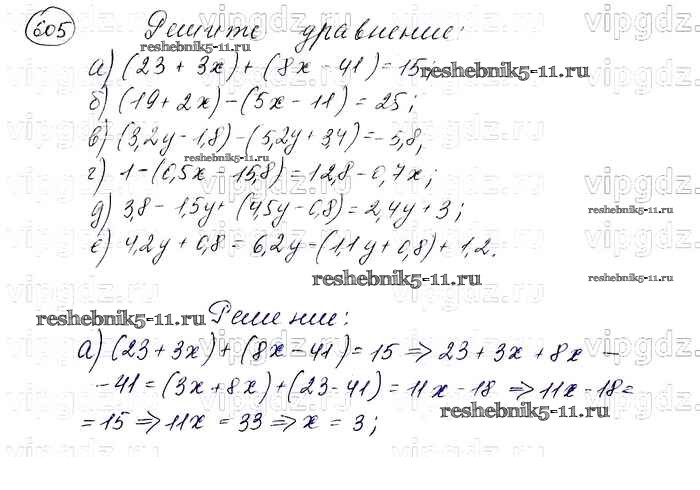 605 Решите уравнение:
а) (23 + 3x) + (8x - 41) = 15;
б) (19 + 2x) - (5x - 11) = 25;
в) (3,2y - 1,8) - (5,2y + 3,4) = -5,8;
г) 1 - (0,5x - 15,8) = 12,8 - 0,7x;
д) 3,8 - 1,5y + (4,5y - 0,8) = 2,4y + 3;
е) 4,2y + 0,8 = 6,2y - (1,1y + 0,8) + 1,2.
Решение:
а) (23 + 3x) + (8x - 41) = 15 => 23 + 3x + 8x -
- 41 = (3x + 8x) + (23 - 41) = 11x - 18 => 11x - 18 =
= 15 => 11x = 33 => x = 3;
reshebnik5-11.ru
reshebnik5-11.ru
reshebnik5-11.ru
reshebnik5-11.ru
reshebnik5-11.ru
reshebnik5-11.ru
reshebnik5-11.ru
reshebnik5-11.ru
vipgdz.ru